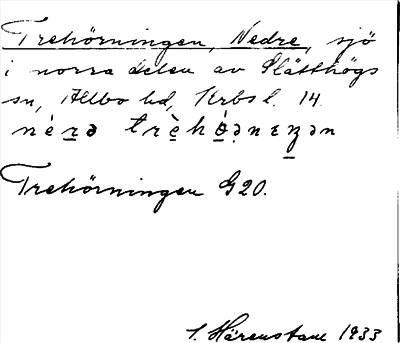 Trehörningen, Nedre, sjö
i norra delen av Slätthögs
sn, Allbo hd, Krbs l. 14.
nèrə trèhò̤ə̣nɛŋən
Trehörningen G20.
S. Härenstam 1933